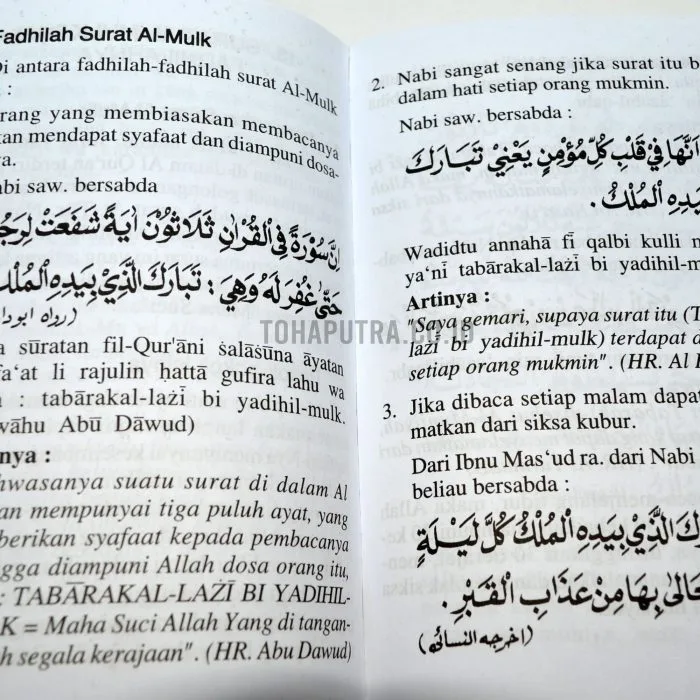 Fadhilah Surat Al-Mulk
Di antara fadhilah-fadhilah surat Al-Mulk
:
rang yang membiasakan membacanya
kan mendapat syafaat dan diampuni dosa-
ya.
abi saw. bersabda
اِنَّ سُوْرَةً فِى الْقُرْاٰنِ ثَلَاثُوْنَ اٰيَةً شَفَعَتْ لِرَجُ
حَتّٰى غُفِرَ لَهُ وَهِيَ : تَبَارَكَ الَّذِيْ بِيَدِهِ الْمُلْكُ
(رواه ابوداو
a sūratan fil-Qur'āni śalāśūna āyatan
fa'at li rajulin ḥattā gufira lahu wa
a : tabārakal-lażī bi yadihil-mulk.
wāhu Abū Dāwud)
nya :
hwasanya suatu surat di dalam Al
an mempunyai tiga puluh ayat, yang
berikan syafaat kepada pembacanya
ngga diampuni Allah dosa orang itu,
: TABĀRAKAL-LAŻĪ BI YADIHIL-
K = Maha Suci Allah Yang di tangan-
h segala kerajaan". (HR. Abu Dawud)
2. Nabi sangat senang jika surat itu b
dalam hati setiap orang mukmin.
Nabi saw. bersabda :
اَنَّهَا فِيْ قَلْبِ كُلِّ مُؤْمِنٍ يَعْنِيْ تَبَارَكَ
بِيَدِهِ الْمُلْكُ.
Wadidtu annahā fī qalbi kulli m
ya‘nī tabārakal-lażī bi yadihil-m
Artinya :
"Saya gemari, supaya surat itu (T
lażī bi yadihil-mulk) terdapat d
setiap orang mukmin". (HR. Al
3. Jika dibaca setiap malam dapat
matkan dari siksa kubur.
Dari Ibnu Mas‘ud ra. dari Nabi
beliau bersabda :
كَ الَّذِيْ بِيَدِهِ الْمُلْكُ كُلَّ لَيْلَةٍ
عَالَى بِهَا مِنْ عَذَابِ الْقَبْرِ.
(اخرجه النسائى)
TOHAPUTRA.CO.ID